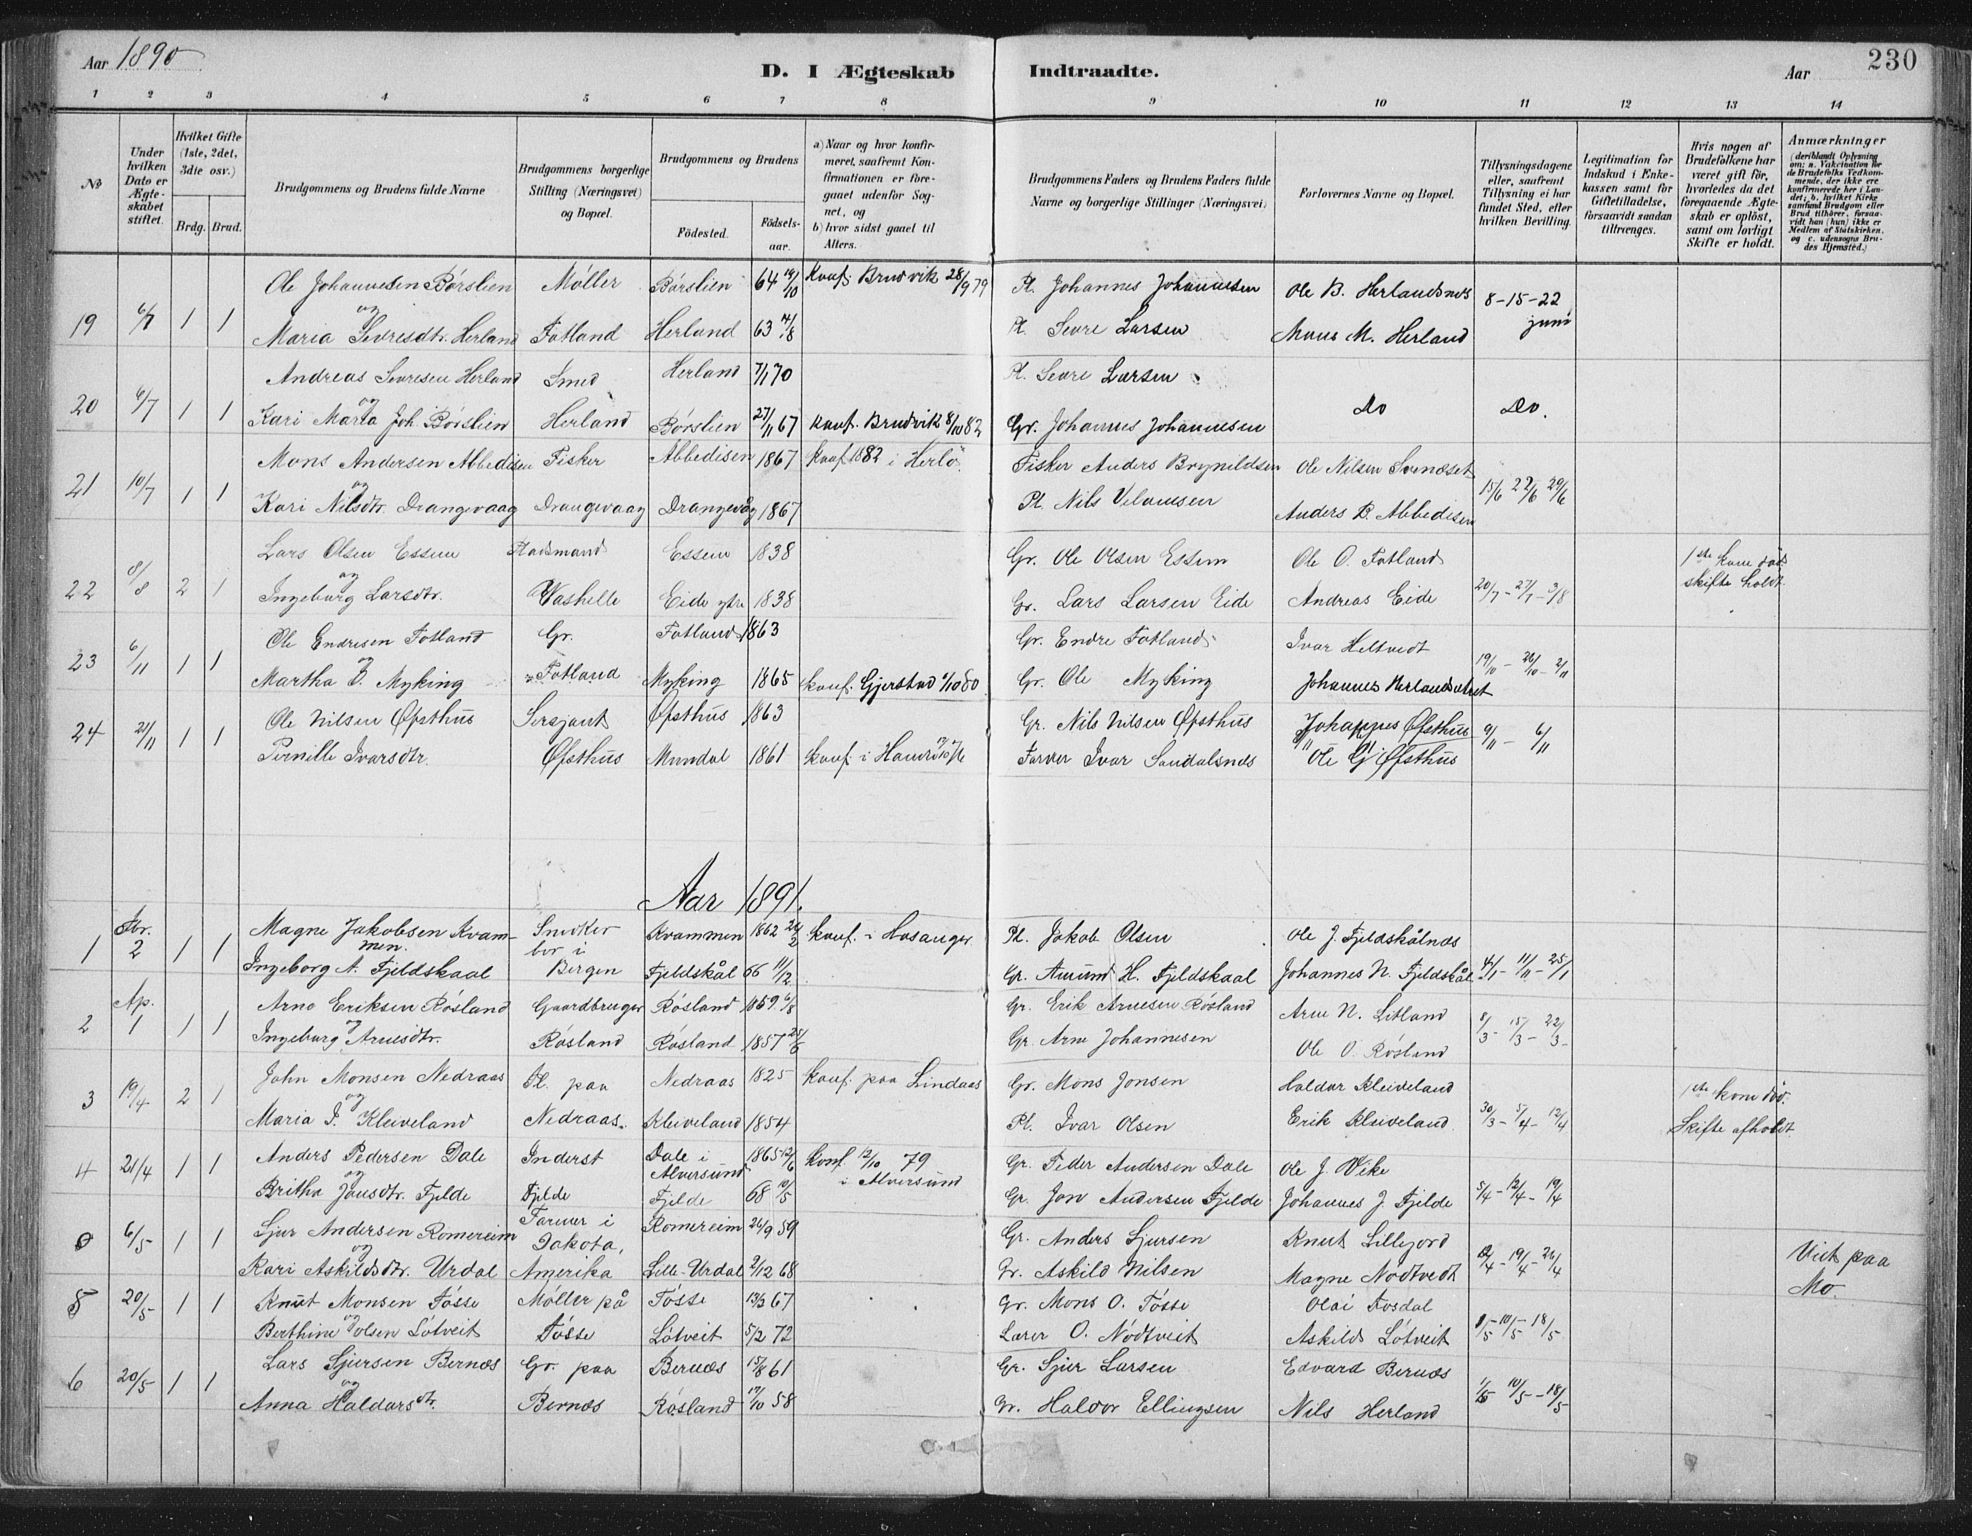 Aar 1890
D. I Ægteskab Indtraadte.
Aar
230
1 2 3 4 5 6 7 8 9 10 11 12 13 14
No
Under hvilken Dato er Ægteskabet stiftet.
Hvilket Gifte (1ste, 2det, 3die osv.)
Brdg. Brud.
Brudgommens og Brudens fulde Navne
Brudgommens borgerlige Stilling (Næringsvei) og Bopæl.
Brudgommens og Brudens
Fødested. Fødselsaar.
a) Naar og hvor konfirmeret, saafremt Konfirmationen er foregaaet udenfor Sognet, og
b) hvor sidst gaaet til Alters.
Brudgommens Faders og Brudens Faders fulde Navne og borgerlige Stillinger (Næringsvei)
Forlovernes Navne og Bopæl.
Tillysningsdagene eller, saafremt Tillysning ei har fundet Sted, efter hvilken Bevilling.
Legitimation for Indskud i Enkekassen samt for Giftetilladelse, forsaavidt saadan tiltrænges.
Hvis nogen af Brudefolkene har været gift før, hvorledes da det foregaaende Ægteskab er opløst, samt om lovligt Skifte er holdt.
Anmærkninger
(deriblandt Oplysning om: a. Vakcination for de Brudefolks Vedkommende, der ikke ere konfirmerede her i Landet; b. hvilket Kirkesamfund Brudgom eller Brud tilhører, forsaavidt han (hun) ikke er Medlem af Statskirken, og c. udensogns Brudes Hjemsted.)
Ole Johannesen Børslien Møller Børslien 64 19/10 Konf. Brudvik 28/9 79 Pl. Johannes Johannesen Ole B. Herlandsnes 8-15-22
19 6/7 1 1 og juni
Maria Sevresdtr. Herland Fotland Herland 63 4/8 Pl. Sevre Larsen Mons M. Herland
Andreas Sevresen Herland Smed Herland 7/1 70 Pl. Sevre Larsen
20 6/7 1 1 og Do Do.
Kari Marta Joh. Børslien Herland Børslien 27/11 67 Konf. Brudvik 8/10 82 Gr. Johannes Johannesen
Mons Andersen Abbedisen Fisker Abbedisen 1867 Konf 1882 i Herlø. Fisker Anders Brynildsen Ole Nilsen Svenæset
21 10/7 1 1 og 15/6 22/6 29/6
Kari Nilsdtr. Drangevaag Drangevaag Drangevåg 1867 Pl. Nils Velomsen Anders B. Abbedisen
Lars Olsen Essem Pladsmand Essem 1838 Gr. Ole Olsen Essem Ole O. Fotland 1ste kone død
22 8/8 2 1 og 20/7 - 27/7 - 3/8 skifte holdt
Ingeborg Larsdtr. Vashelle Eide ytre 1838 Gr. Lars Larsen Eide Andreas Eide
Ole Endresen Fotland Gr. Fotland 1863 Gr. Endre Fotland Ivar Heltvedt
23 6/11 1 1 og 19/10 - 26/10 - 2/11
Martha Myking Fotland Myking 1865 Konf. Gjerstad /10 80 Gr. Ole Myking Johannes
Ole Nilsen Øfsthus Sersjant Øfsthus 1863 Gr. Nils Nilsen Øfsthus Johannes Øfsthus
24 21/11 1 1 9/11 - 6/11
Pernille Ivarsdtr. Øfsthus Mundal 1861 Konf. i Farver Ivar Sandalsnes Ole G Øfsthus
Aar 1891.
Fbr. Magne Jakobsen Kvam- Snedker Kvammen 1862 24/2 konf. i Hosanger Pl. Jakob Olsen Ole J. Fjeldskålnæs
1 2 1 1 men. bor i
Ingeborg A. Fjeldskaal Bergen Fjeldskål 66 11/12 Gr. Amund H. Fjeldskaal Johannes N. Fjeldskål 4/1 - 11/11 - 25/1
Ap. Arne Eriksen Røsland Gaardbruger Røsland 1859 6/8 Gr. Erik Arnesen Røsland Arne N. Litland
2 1 1 1 og 8/3 - 15/3 - 22/3
Ingeborg Arnesdtr. Røsland Røsland 1857 25/6 Gr. Arne Johannesen Ole O. Røsland
John Monsen Nedraas Pl. paa Nedraas 1825 konf. paa Lindaas Gr. Mons Jonsen Haldor Kleiveland 1ste kone død.
3 19/4 2 1 og 30/3 - 5/4 - 12/4
Maria I. Kleiveland Nedraas. Kleiveland 1854 Pl. Ivar Olsen Erik Kleiveland Skifte afholdt
Anders Pedersen Dale Inderst Dale i Alversund 1865 12/6 Konf 12/10 79 i Alversund Gr. Peder Andersen Dale Ole J. Vike
4 21/4 1 1 og 5/4 - 12/4 - 19/4
Britha Jonsdtr. Fjelde Fjelde Fjelde 68 10/5 Gr. Jon Andersen Fjelde Johannes J. Fjelde
Sjur Andersen Romereim Farmer i Romereim 26/9 59 Gr. Anders Sjursen Knut Lillejord
6/5 1 1 og Dakota, 12/4 - 19/4 - 26/4 Viet paa
Kari Askildsdtr. Urdal Amerika Lille-Urdal 2/12 68 Gr. Askild Nilsen Magne Nødtvedt Mo.
5 20/5 1 1 Knut Monsen Tøsse Møller på Tøsse 13/3 67 Gr. Mons O. Tøsse Olai Fosdal
og 8/5 - 10/5 - 18/5
Berthine Olsen Løtveit Tøsse Løtveit 5/2 72 Lærer O. Nødtveit Askild Løtveit
Lars Sjursen Bernæs Gr. paa Bernæs 15/8 61 Gr. Sjur Larsen Edvard Bernæs
6 20/5 1 1 og 10/5 - 18/5
Anna Haldorsdtr. Bernæs Røsland 17/10 58 Gr. Haldor Ellingsen Nils Herland